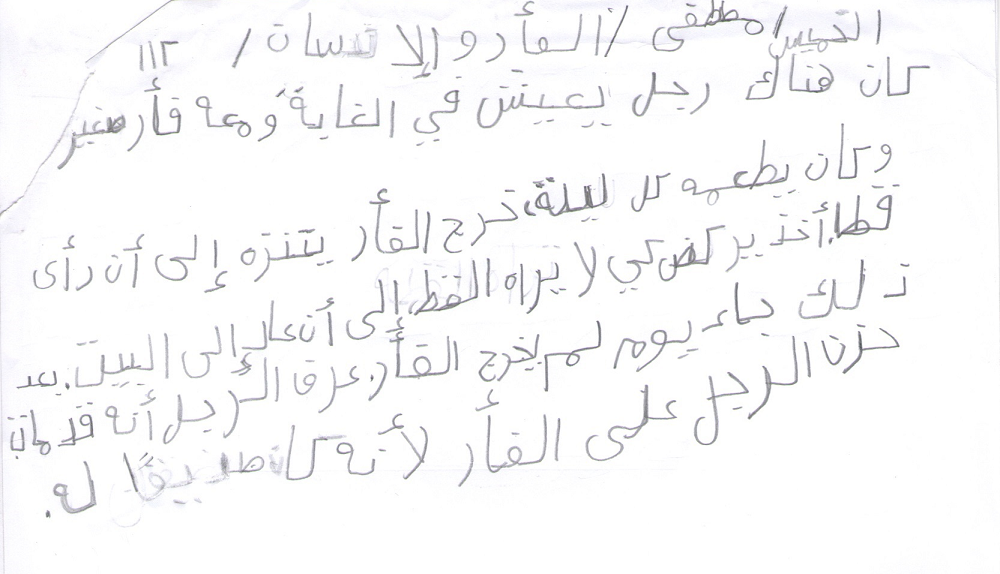 الخميس/مصطفى /الفأر والإنسان / ١١٢
كان هناك رجل يعيش في الغابة ومعه فأر صغير
وكان يطعمه كل ليلة، خرج الفأر يتنزه إلى أن رأى
قطا، أخذ يركض كي لا يراه القط، إلى أن عاد إلى البيت. بعد
ذلك جاء يوم لم يخرج الفأر. عرف الرجل أنه قد مات
حزن الرجل على الفأر لأنه كان صديقًا له.